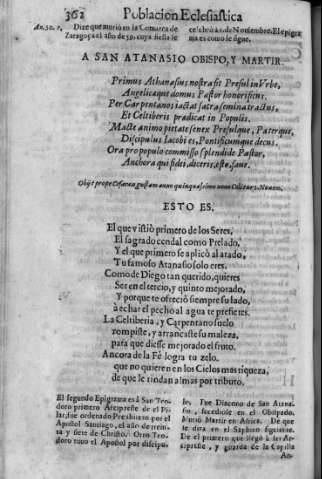 362 Poblacion Eclesiastica
Dize que murió en la Comarca de
Zaragoça el año de 59. cuya fiesta se
celebra à 1. de Nouiembre. El epigra
ma es como se sigue.
A SAN ATANASIO OBISPO, Y MARTIR.
Primus Athanasius nostra sit Præsul in Vrbe,
Angelicaque domus Pastor honorificus.
Per Carpentanos iactat sacra semina tractus,
Et Celtiberis prædicat in Populis.
Macte animo pietate senex Præsulque, Paterque,
Discipulus Iacobi es, Pontificumque decus.
Ora pro populo commisso splendide Pastor,
Anchora qui fidei, diceris, esto, faue.
Obijt prope Cesaraugustam
ESTO ES.
El que vistiò primero de los Seres,
El sagrado cendal como Prelado,
Y el que primero se aplicò al arado,
Tu famoso Atanasio solo eres.
Como de Diego tan querido, quieres
Ser en el tercio, y quinto mejorado,
Y porque te ofreciò siempre su lado,
à echar el pecho al agua te prefieres.
La Celtiberia, y Carpentano suelo
rompiste, y arrancaste su maleza,
para que diesse mejorado el fruto.
Ancora de la Fè logra tu zelo.
que no quieren en los Cielos mas riqueza,
de que le rindan almas por tributo.
El segundo Epigrama es à San Teo
doro primero Arcipreste de el Pi
lar, fue ordenado Presbitero por el
Apostol Santiago, el año de trein
ta y siete de Christo. Otro Teo
doro tuuo el Apostol por discipu-
lo. Fue Diacono de San Atana-
sio, sucediole en el Obispado.
Muriò Martir en Africa. De que
le dirà en el Saphiro siguiente.
De el primero que llegò à ser Ar-
cipreste, y guarda de la Capilla
An-